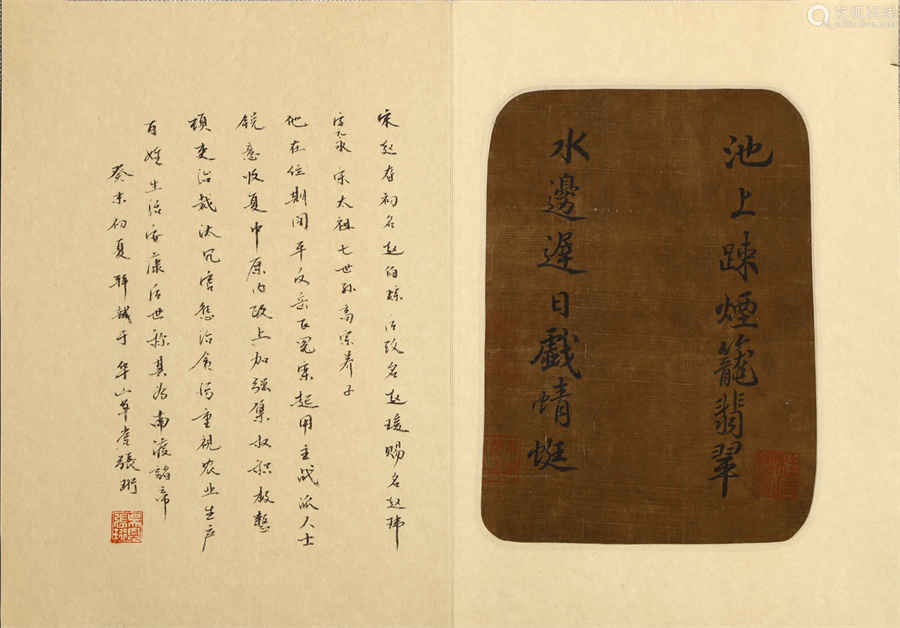 池上踈煙籠翡翠
水邊遲日戲蜻蜓
宋赵昚初名赵伯琮后改名赵瑗赐名赵玮
字元永宋太祖七世孙高宗养子
他在位期间平反岳飞冤案起用主战派人士
锐意收复中原内政上加强集权积极整
顿吏治裁汰冗官惩治贪污重视农业生产
百姓生活安康后世称其为南渡诸帝
癸未初夏拜識于山草堂張珩